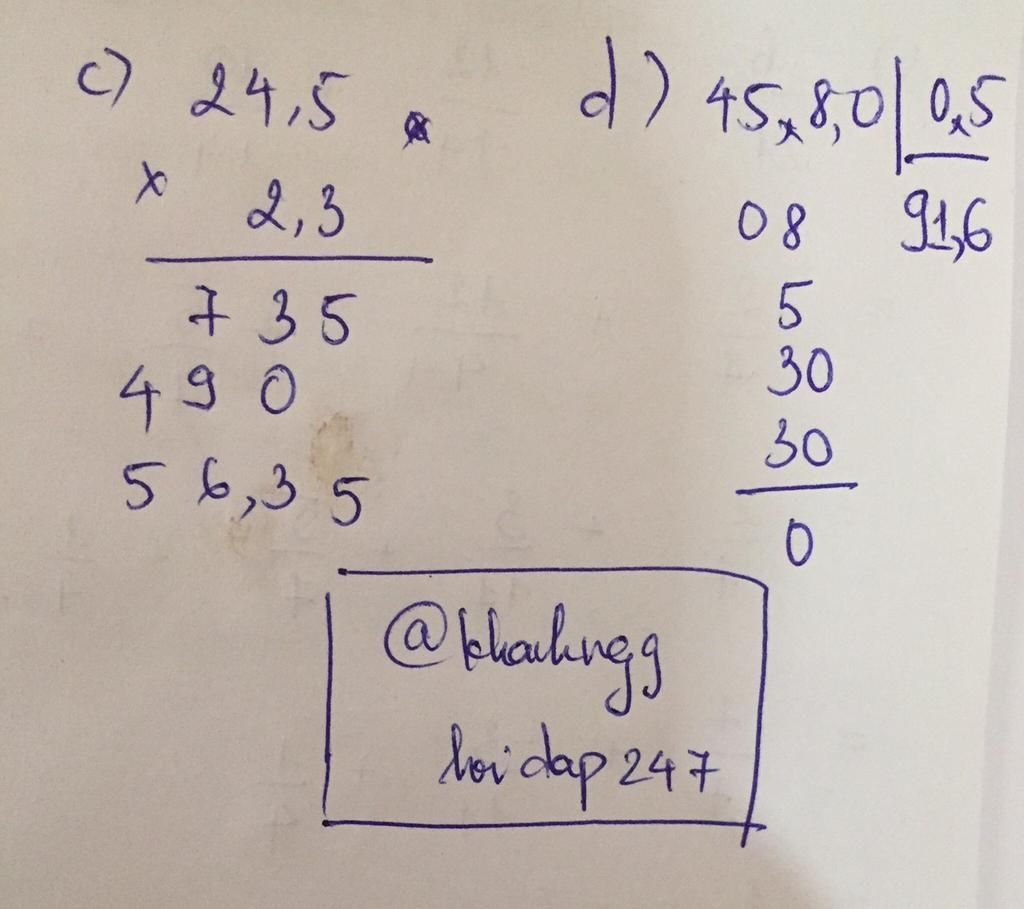 c) 24,5
x 2,3
735
490
56,35
d) 45,8,0 | 0,5
08 91,6
5
30
30
0
@khahngg
hoidap247